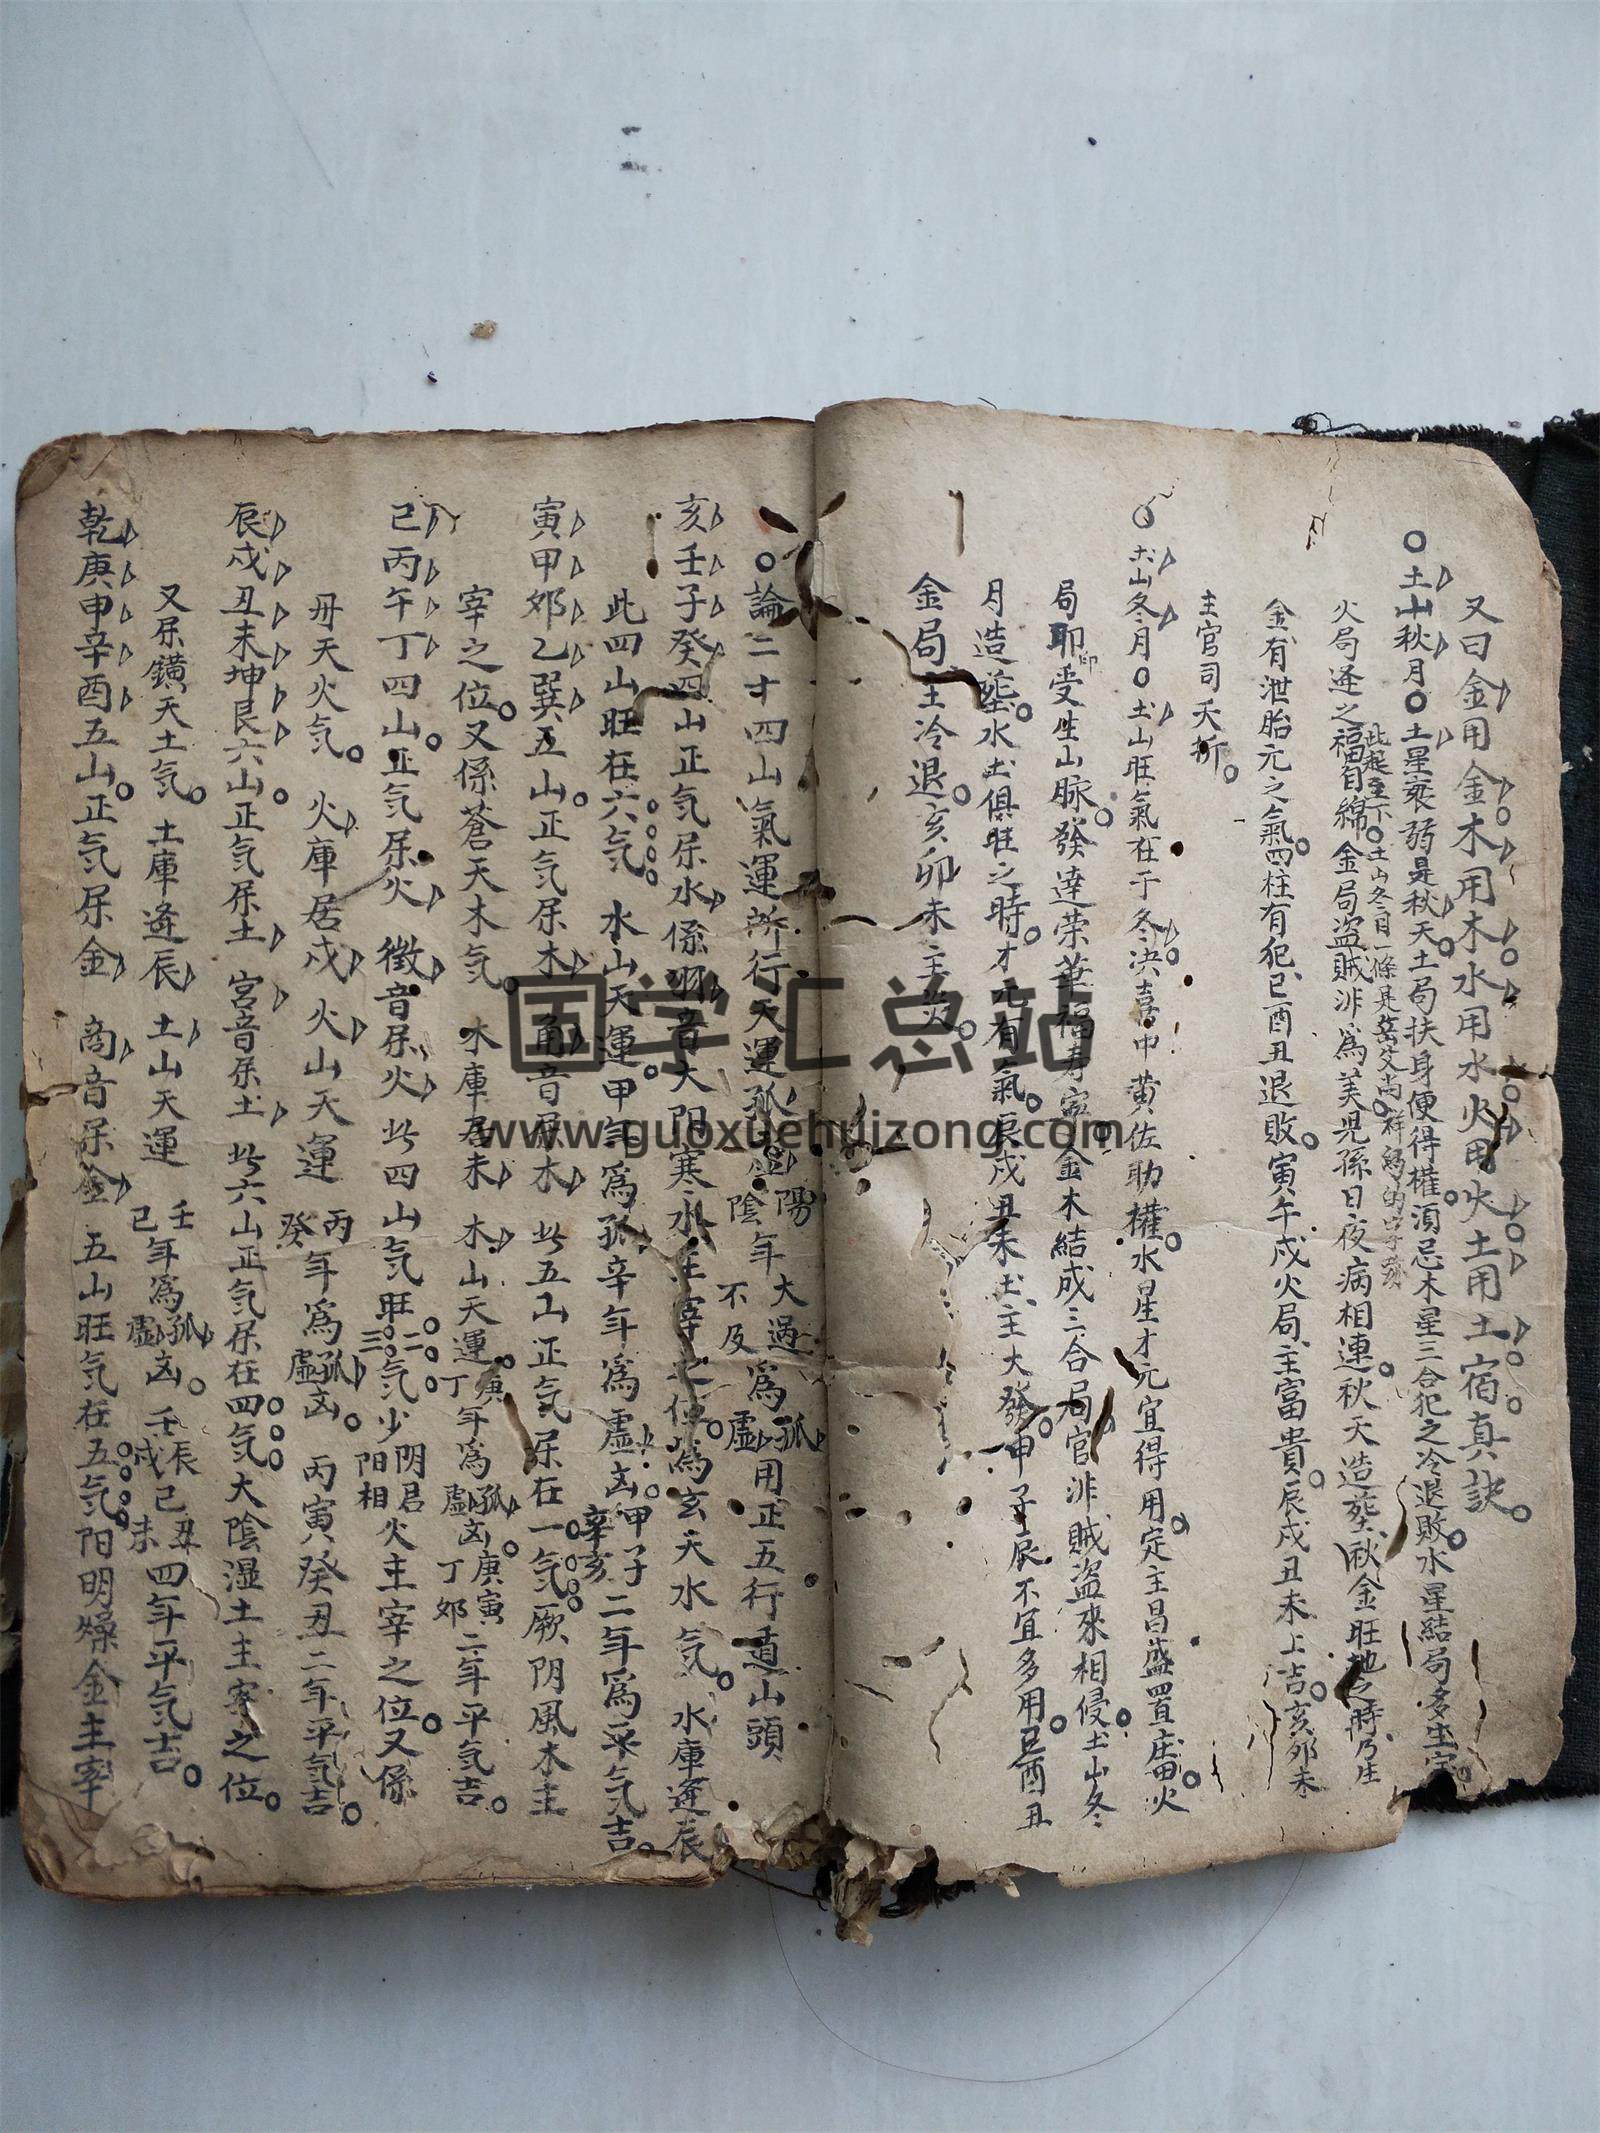 又曰金用金木用木水用水火用火土用土宿真訣
〇土山秋月〇土星衰弱是秋天土局扶身便得權須忌木星三合犯之冷退敗水星結局多生宝
火局逢之福自綿金局盗賊非為美児孫日夜病相連秋天造塟秋金旺地之時乃生
金有泄胎元之氣四柱有犯已酉丑退敗寅午戌火局主富貴辰戌丑未上吉亥卯未
主官司夭折
土山冬月〇土山旺氣在于冬決喜中黄佐助權水星才元宜得用定主昌盛置庄田火
局卯受生山脉發達荣華福寿金木結成三合局官非賊盗來相侵土山冬
月造塟水土俱旺之時才元有氣辰戌丑未土主大發申子辰不宜多用已酉丑
金局主冷退亥卯未主災
〇論二十四山氣運所行天運孤虚陽陰年大過不及為孤虚用正五行遁山頭
亥壬子癸四山正気属水係羽音大阴寒水主宰之位為玄天水気水庫逢辰
此四山旺在六気水山天運甲年為孤辛年為虚凶甲子辛亥二年為平気吉
寅甲卯乙巽五山正気属木角音属木此五山正気属在一気厥阴風木主
宰之位又係蒼天木気木庫居未木山天運庚丁年為孤虚凶庚寅丁卯二年平気吉
已丙午丁四山正気属火徵音属火此四山気旺二三気少阴君阳相火主宰之位又係
丹天火気火庫居戌火山天運丙癸年為孤虚凶丙寅癸丑二年平気吉
辰戌丑未坤艮六山正気属土宮音属土此六山正気属在四気大陰湿土主宰之位
又属鐄天土気土庫逢辰土山天運壬已年為孤虚凶壬辰戌已丑未四年平気吉
乾庚申辛酉五山正気属金商音属金五山旺気在五気阳明燥金主宰
国学汇总站
www.guoxuehuizong.com